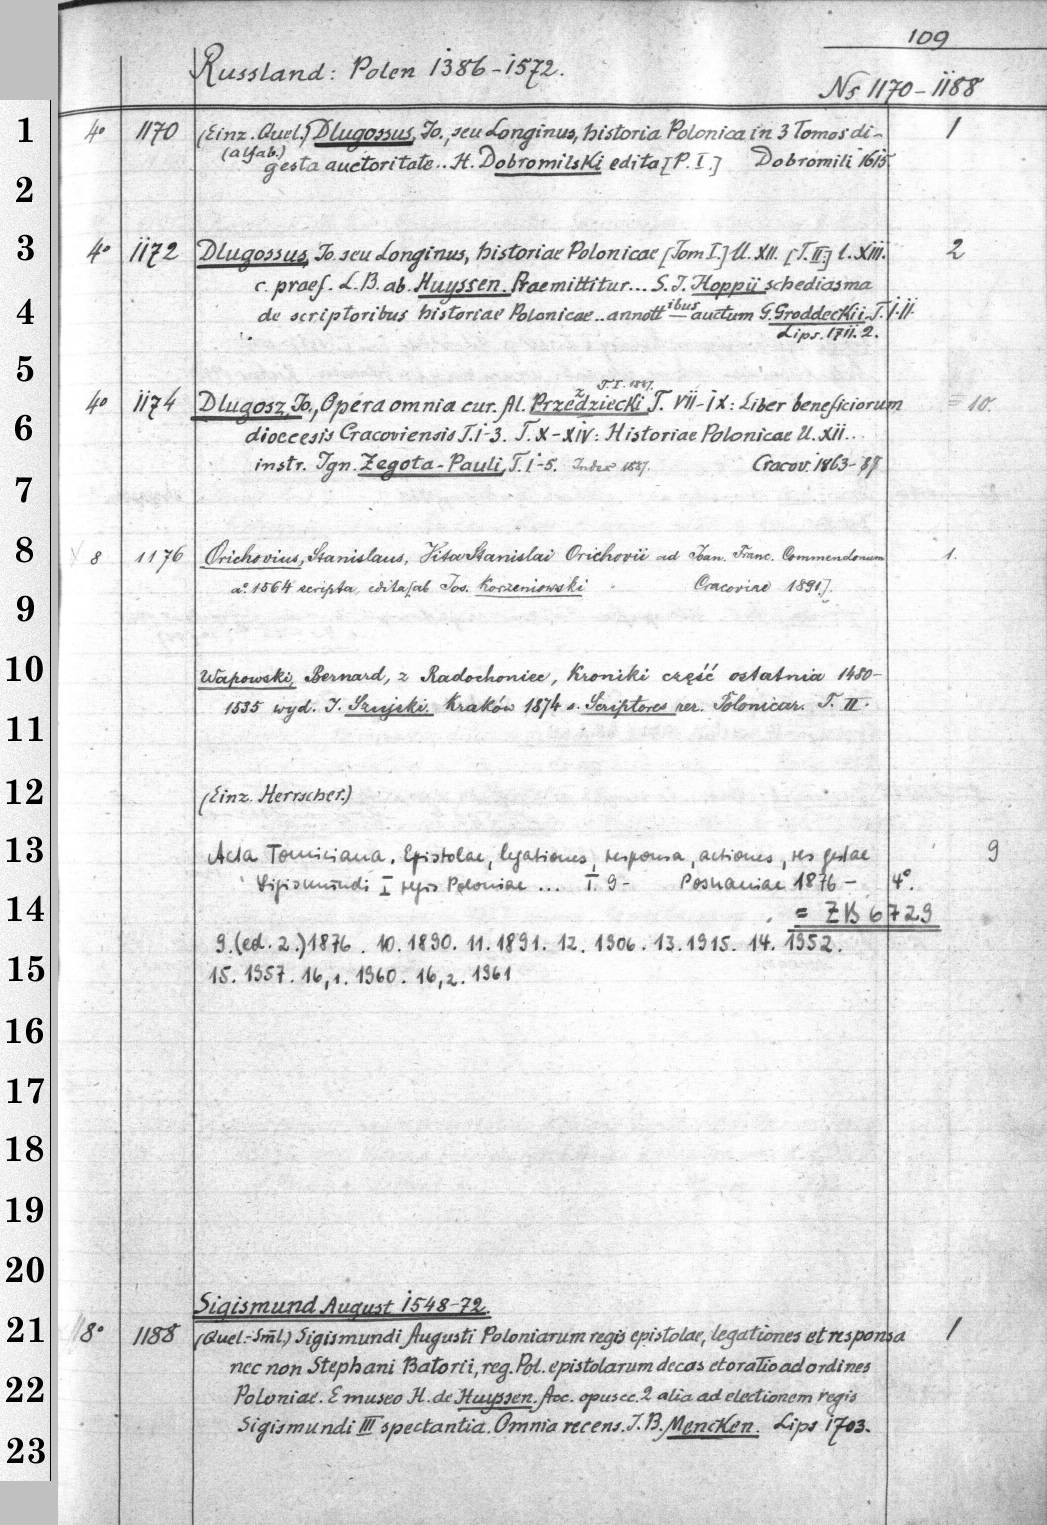 109
Russland: Polen 1386-1572.
Ns 1170-1188
1
4° 1170 (Einz. Quel.) Dlugossus, Jo., seu Longinus, historia Polonica in 3 Tomos di- 1
(alfab.)
gesta auctoritate.. H. Dobromilski edita [P. I.] Dobromili 1615.
2
3
4° 1172 Dlugossus, Jo. seu Longinus, historiae Polonicae [Tom I.] ll. XII. [T. II.] l. XIII. 2
c. praef. L.B. ab. Huyssen. Praemittitur... S. J. Hoppii schediasma
4
de scriptoribus historiae Polonicae.. annott ibus auctum G. Groddeckii. T. I-II.
Lips. 1711. 2.
5
T. I. 1887.
4° 1174 Dlugosz, Jo., Opera omnia cur. Al. Przeździecki T. VII-IX: Liber beneficiorum 10.
6
dioecesis Cracoviensis T. 1-3. T. X-XIV: Historiae Polonicae ll. XII..
instr. Ign. Żegota-Pauli, T. 1-5. Index 1887. Cracov. 1863-87
7
8
8 1176 Orichovius, Stanislaus, Vita Stanislai Orichovii ad Joan. Franc. Commendonum 1.
a° 1564 scripta, edita [ab Jos. Korzeniowski Cracoviae 1891].
9
10
Wapowski, Bernard, z Radochoniec, Kroniki część ostatnia 1480-
1535 wyd. J. Szujski. Kraków 1874 s. Scriptores rer. Polonicar. T. II.
11
12
(Einz. Herrscher.)
13
Acta Tomiciana. Epistolae, legationes, responsa, actiones, res gestae 9
Sigismundi I regis Poloniae ... T. 9- Posnaniae 1876- 4°.
14
= ZB 6729
9. (ed. 2.) 1876. 10. 1890. 11. 1891. 12. 1906. 13. 1915. 14. 1952.
15
15. 1957. 16,1. 1960. 16,2. 1961
16
17
18
19
20
Sigismund August 1548-72.
21
8° 1188 (Quel.-Sml.) Sigismundi Augusti Poloniarum regis epistolae, legationes et responsa 1
nec non Stephani Batorii, reg. Pol. epistolarum decas et oratio ad ordines
22
Poloniae. E museo H. de Huyssen. Acc. opusce. 2 alia ad electionem regis
Sigismundi III spectantia. Omnia recens. J. B. Mencken. Lips 1703.
23